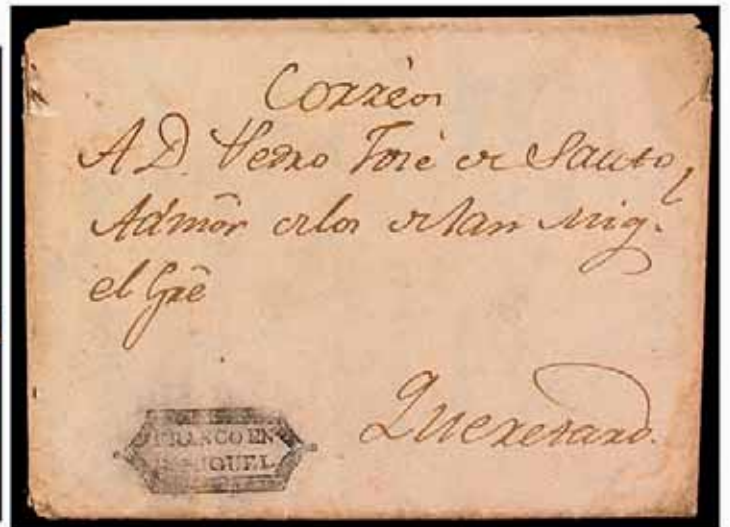 Correos
A D. Pedro José de Sauto,
Admõr de los de San Mig.
el Grẽ
Queretaro.
FRANCO EN
S. MIGUEL